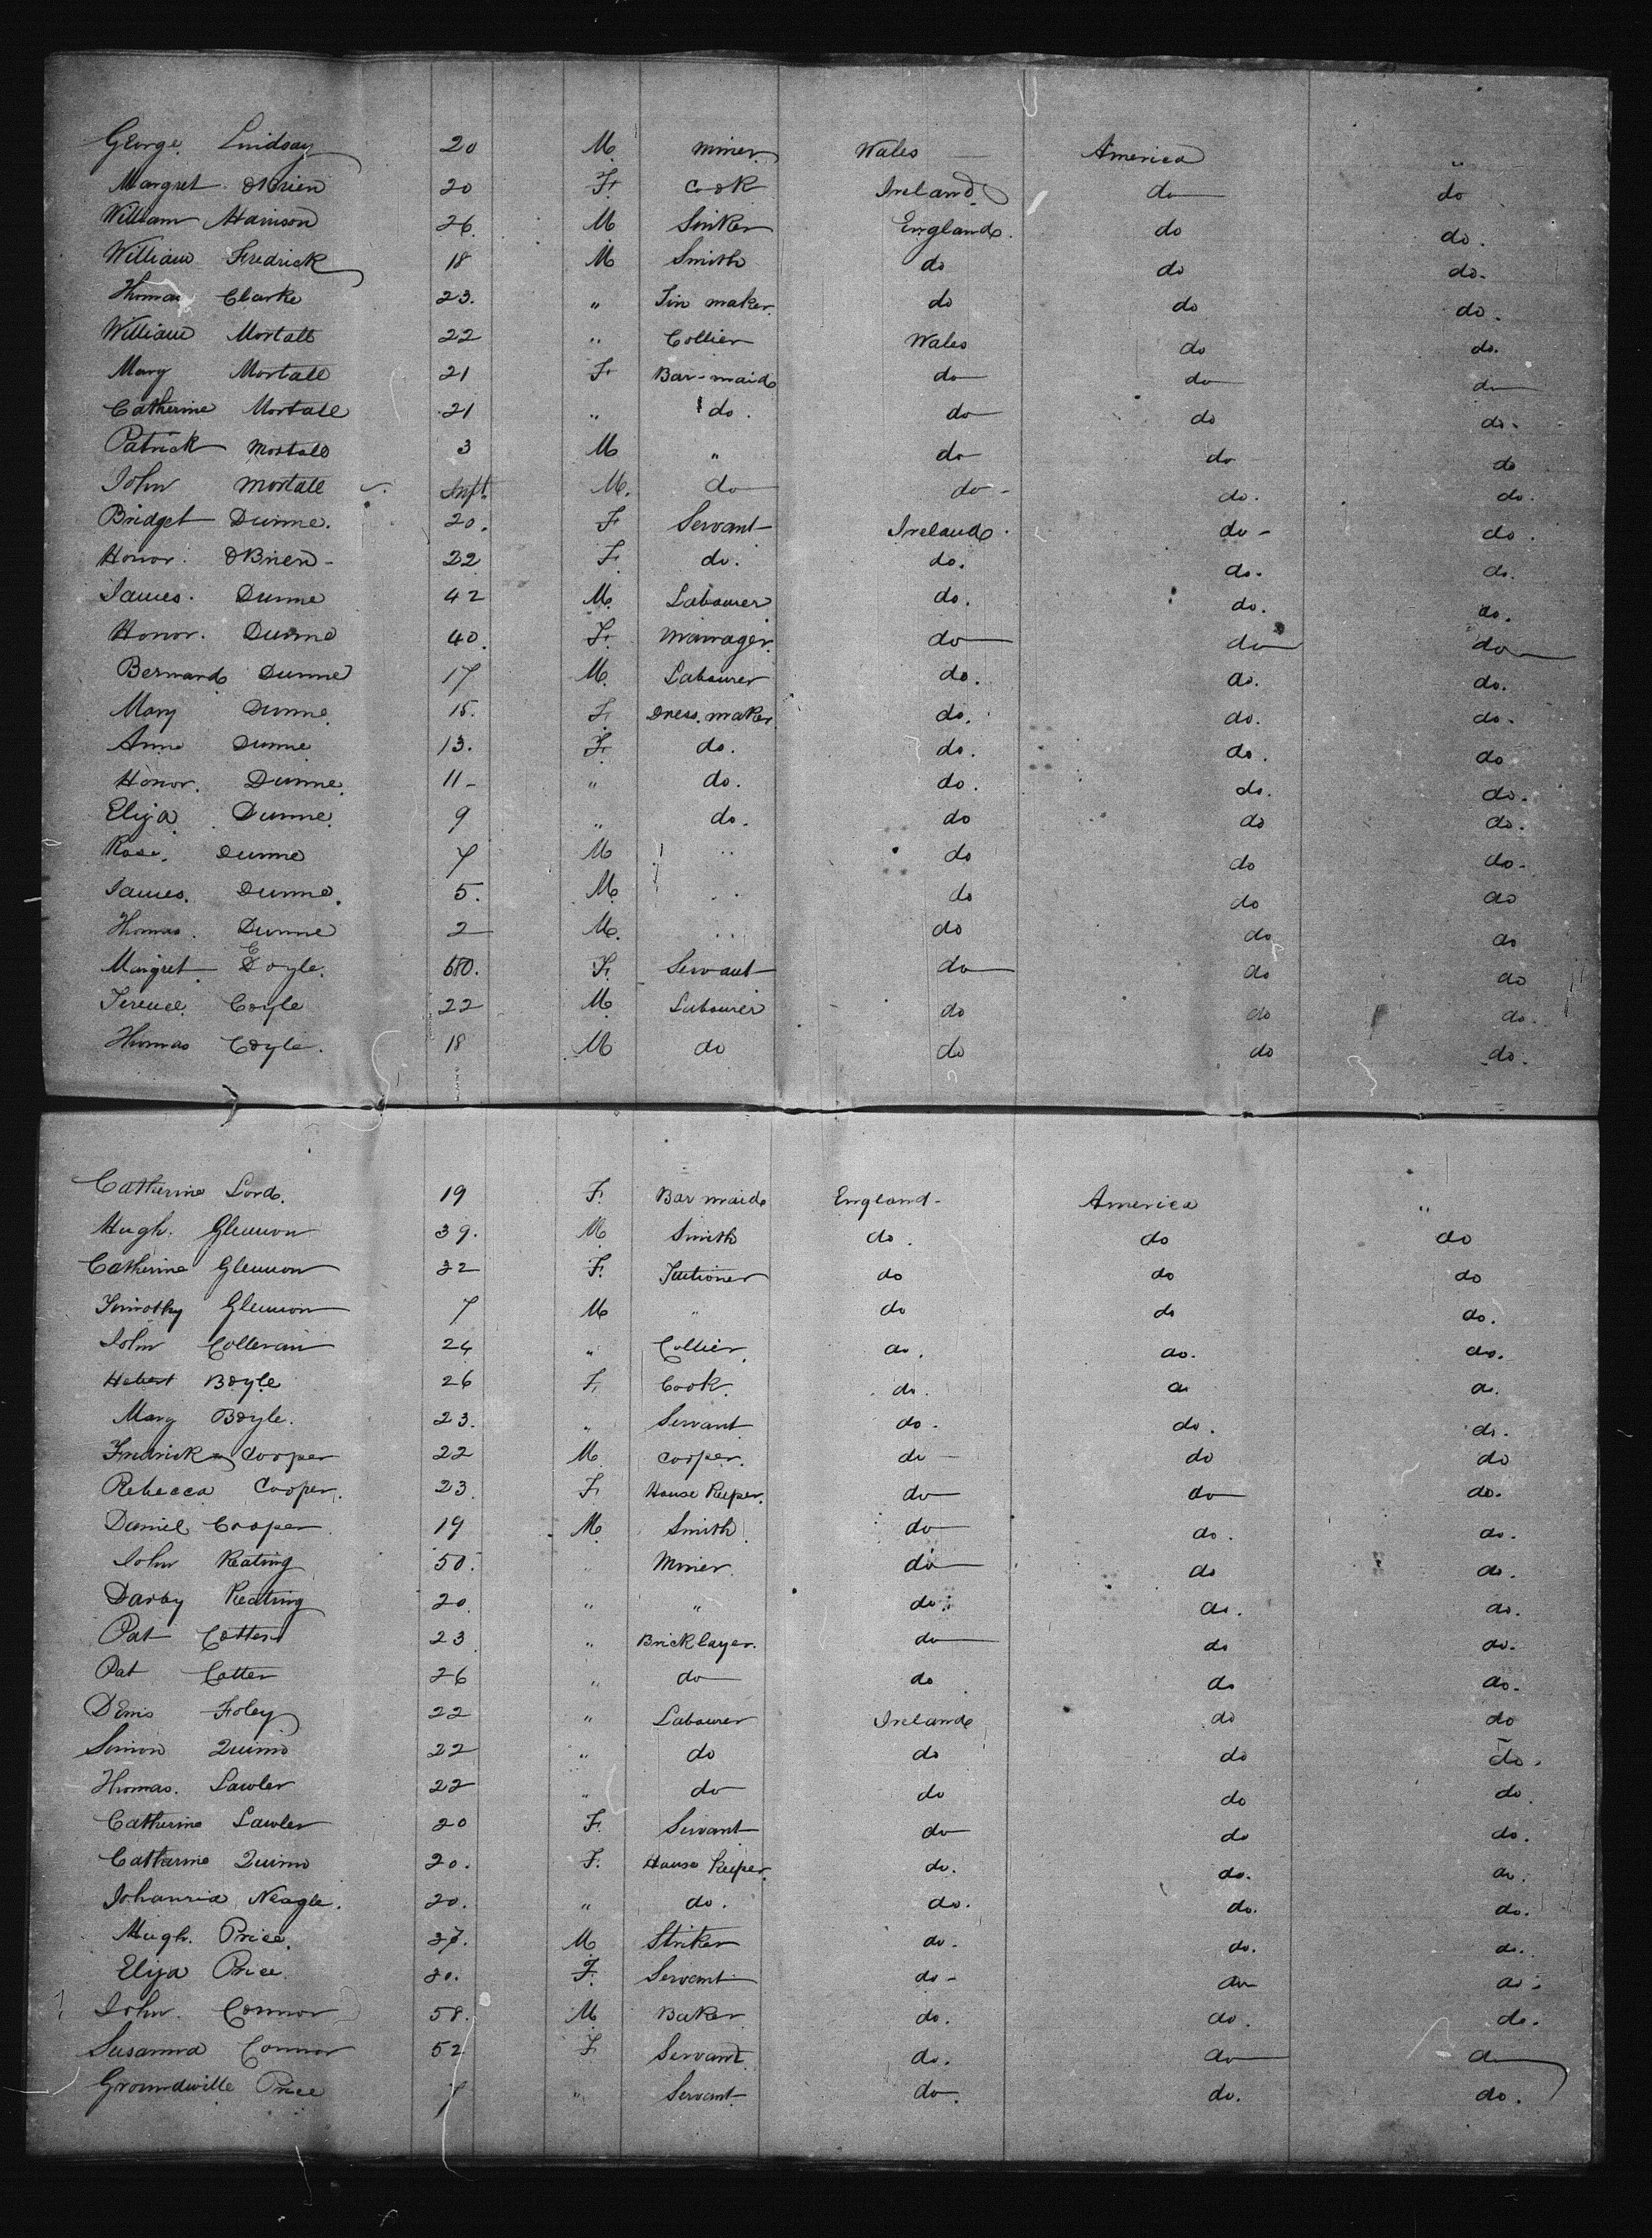 George Lindsay 20 M. miner Wales America "
Margret OBrien 20 F. Cook Ireland do do
William Harrison 26. M Sinker England. do do.
William Fredrick 18 M Smith do do do.
Thomas Clarke 23. " Tin maker. do do do.
William Mortall 22 " Collier Wales do do.
Mary Mortall 21 F. Bar-maid do do do
Catherine Mortall 21 " do. do do do.
Patrick Mortall 3 M " do do do
John Mortall Inft. M. do do do. do.
Bridget Dunne. 20. F Servant Ireland. do do.
Honor. OBrien 22 F. do. do. do. do.
James. Dunne 42 M. Labourer do. do. do.
Honor. Dunne 40. F. Manager. do do do
Bernard Dunne 17 M. Labourer do. do. do.
Mary Dunne 15. F. Dress. maker do. do. do.
Anne Dunne 13. F. do. do. do. do
Honor. Dunne. 11 " do. do. do. do.
Eliza Dunne. 9 " do. do do do.
Rose. Dunne 7 M " do do do.
James. Dunne. 5. M. " do do do
Thomas. Dunne 2 M. " do do do
Margret Doyle. F. Servant do do do
Terence. Coyle 22 M. Labourer do do do.
Thomas Coyle. 18 M do do do do.
Catherine Lord. 19 F. Bar maid England America "
Hugh. Glennon 39. M. Smith do. do do
Catherine Glennon 32 F. do do do
Timothy Glennon 7 M " do do do.
John Colleran 24 " Collier. do. do. do.
Hebert Boyle 26 F. Cook. do. do do.
Mary Boyle. 23. " Servant do. do. do.
Fredrick Cooper 22 M. Cooper. do do do
Rebecca Cooper. 23. F. House Keeper. do do do.
Daniel Cooper. 19 M. Smith do do. do.
John Keating 50. " Miner. do do do.
Darby Keating 20. " " do. do. do.
Pat Cotter 23 " Bricklayer. do do do.
Pat Cotter 26 " do do do do.
Denis Foley 22 " Labourer Ireland do do
Simon Quinn 22 " do do do do.
Thomas. Lawler 22 " do do do do.
Catherine Lawler 20 F. Servant do do do.
Catherine Quinn 20. F. House Keeper. do. do. do.
Johanna Neagle. 20. " do. do. do. do.
Hugh. Price. 37. M Striker do. do. do.
Eliza Price. 30. F. Servant do do do.
John. Connor 58. M. Baker do. do. do.
Susanna Connor 52 F Servant. do. do do
Groundville Price 7 " Servant do. do. do.